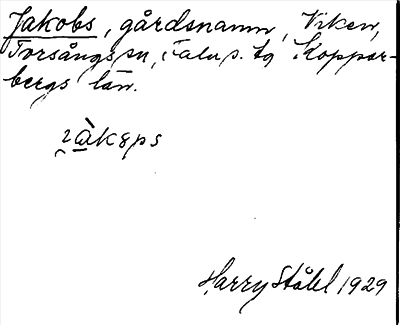 Jakobs, gårdsnamn, Viken,
Torsångs sn, Falu s. tg Koppar-
bergs län.
Harry Ståhl 1929